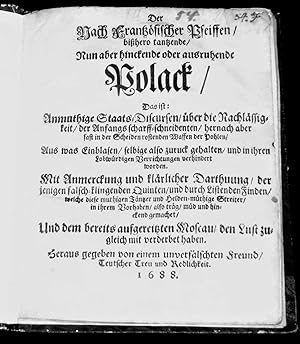 Der
Nach Frantzösischer Pfeiffen/
bißhero tantzende/
Nun aber hinckende oder ausruhende
Polack/
Das ist:
Anmuthige Staats-Discursen/ über die Nachlässig-
keit/ der Anfangs scharff-schneidenten/ hernach aber
fast in der Scheiden rostenden Waffen der Pohlen/
Aus was Einblasen/ selbige also zuruck gehalten/ und in ihren
Lobwürdigen Verrichtungen verhindert
worden.
Mit Anmerckung und klärlicher Darthuung/ der
jenigen falsch-klingenden Quinten/ und durch Listenden Finden/
welche diese muthigen Täntzer und Helden-müthige Streiter/
in ihrem Vorhaben/ also träg/ müd und hin-
ckend gemachet/
Und dem bereits aufgereitzten Moscau/ den Lust zu-
gleich mit verderbet haben.
Heraus gegeben von einem unverfälschten Freund/
Teutscher Treu und Redlichkeit.
1688.